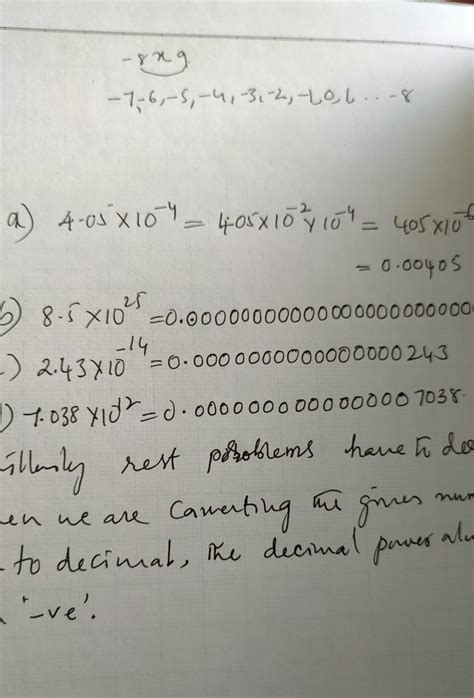 -8 x 9
-7,-6,-5,-4,-3,-2,-1,0,1...-8
a) 4.05 x 10^-4 = 4.05 x 10^-2 x 10^-4 = 405 x 10^-6
= 0.00405
b) 8.5 x 10^25 = 0.000000000000000000000000
) 2.43 x 10^-14 = 0.00000000000000000243
) 7.038 x 10^12 = 0.00000000000000007038.
illarly rest problems have to
en we are converting the given num
to decimal, the decimal power al
'-ve'.